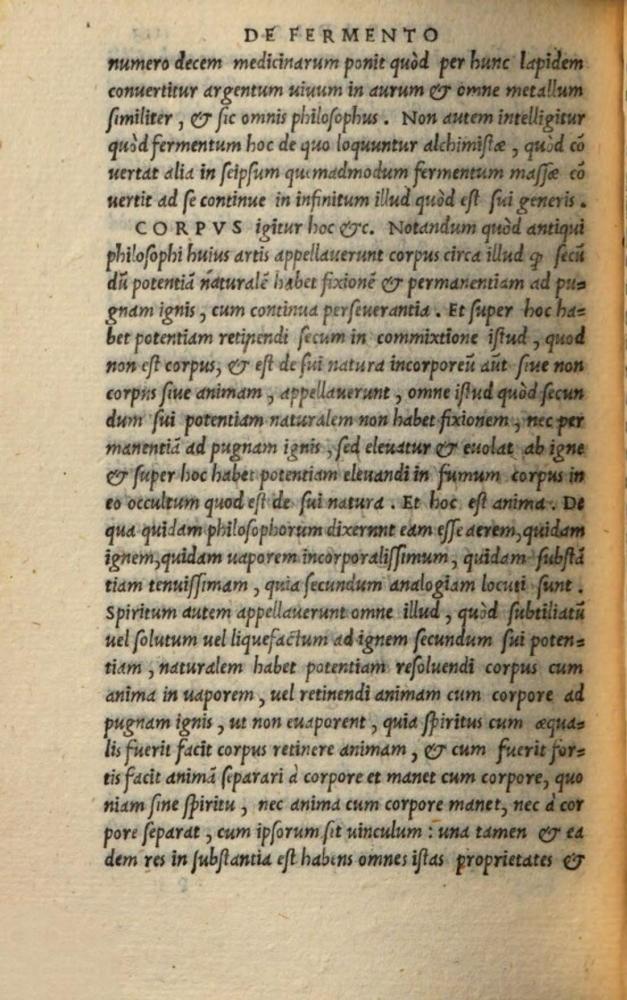 DE FERMENTO
numero decem medicinarum ponit quòd per hunc lapidem
conuertitur argentum uiuum in aurum & omne metallum
similiter, & sic omnis philosophus. Non autem intelligitur
quòd fermentum hoc de quo loquuntur alchimistæ, quòd cō
uertat alia in seipsum quemadmodum fermentum massæ cō
uertit ad se continue in infinitum illud quòd est sui generis.
CORPVS igitur hoc &c. Notandum quòd antiqui
philosophi huius artis appellauerunt corpus circa illud ꝙ secū
dū potentiā naturalē habet fixionē & permanentiam ad pu=
gnam ignis, cum continua perseuerantia. Et super hoc ha=
bet potentiam retinendi secum in commixtione istud, quod
non est corpus, & est de sui natura incorporeū aūt siue non
corpus siue animam, appellauerunt, omne istud quòd secun
dum sui potentiam naturalem non habet fixionem, nec per
manentiā ad pugnam ignis, sed eleuatur & euolat ab igne
& super hoc habet potentiam eleuandi in fumum corpus in
eo occultum quod est de sui natura. Et hoc est anima. De
qua quidam philosophorum dixernnt eam esse aerem, quidam
ignem, quidam uaporem incorporalissimum, quidam substā
tiam tenuissimam, quia secundum analogiam locuti sunt.
Spiritum autem appellauerunt omne illud, quòd subtiliatū
uel solutum uel liquefactum ad ignem secundum sui poten=
tiam, naturalem habet potentiam resoluendi corpus cum
anima in uaporem, uel retinendi animam cum corpore ad
pugnam ignis, ut non euaporent, quia spiritus cum æqua=
lis fuerit facit corpus retinere animam, & cum fuerit for=
tis facit animā separari à corpore et manet cum corpore, quo
niam sine spiritu, nec anima cum corpore manet, nec à cor
pore separat, cum ipsorum sit uinculum : una tamen & ea
dem res in substantia est habens omnes istas proprietates &